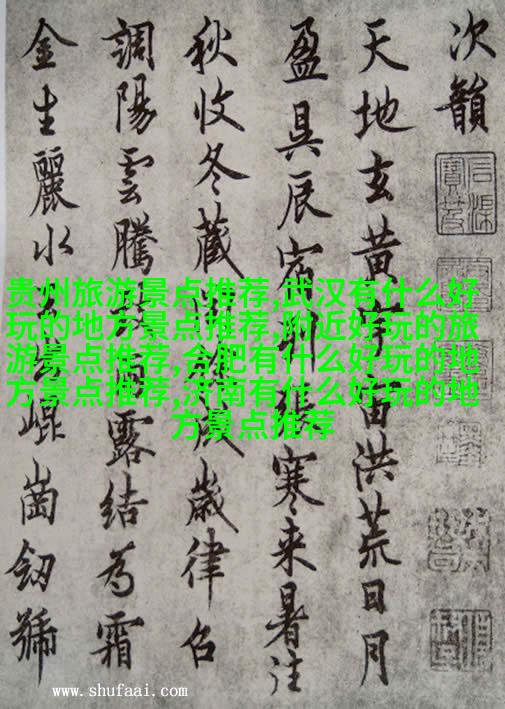 次韻
天地玄黄洪荒日月
盈昃辰宿列寒来暑往
秋收冬蔵歲律召
調陽雲騰露結為霜
金生麗水崐崗劒號
贵州旅游景点推荐,武汉有什么好
玩的地方景点推荐,附近好玩的旅
游景点推荐,合肥有什么好玩的地
方景点推荐,济南有什么好玩的地
方景点推荐
www.shufaai.com